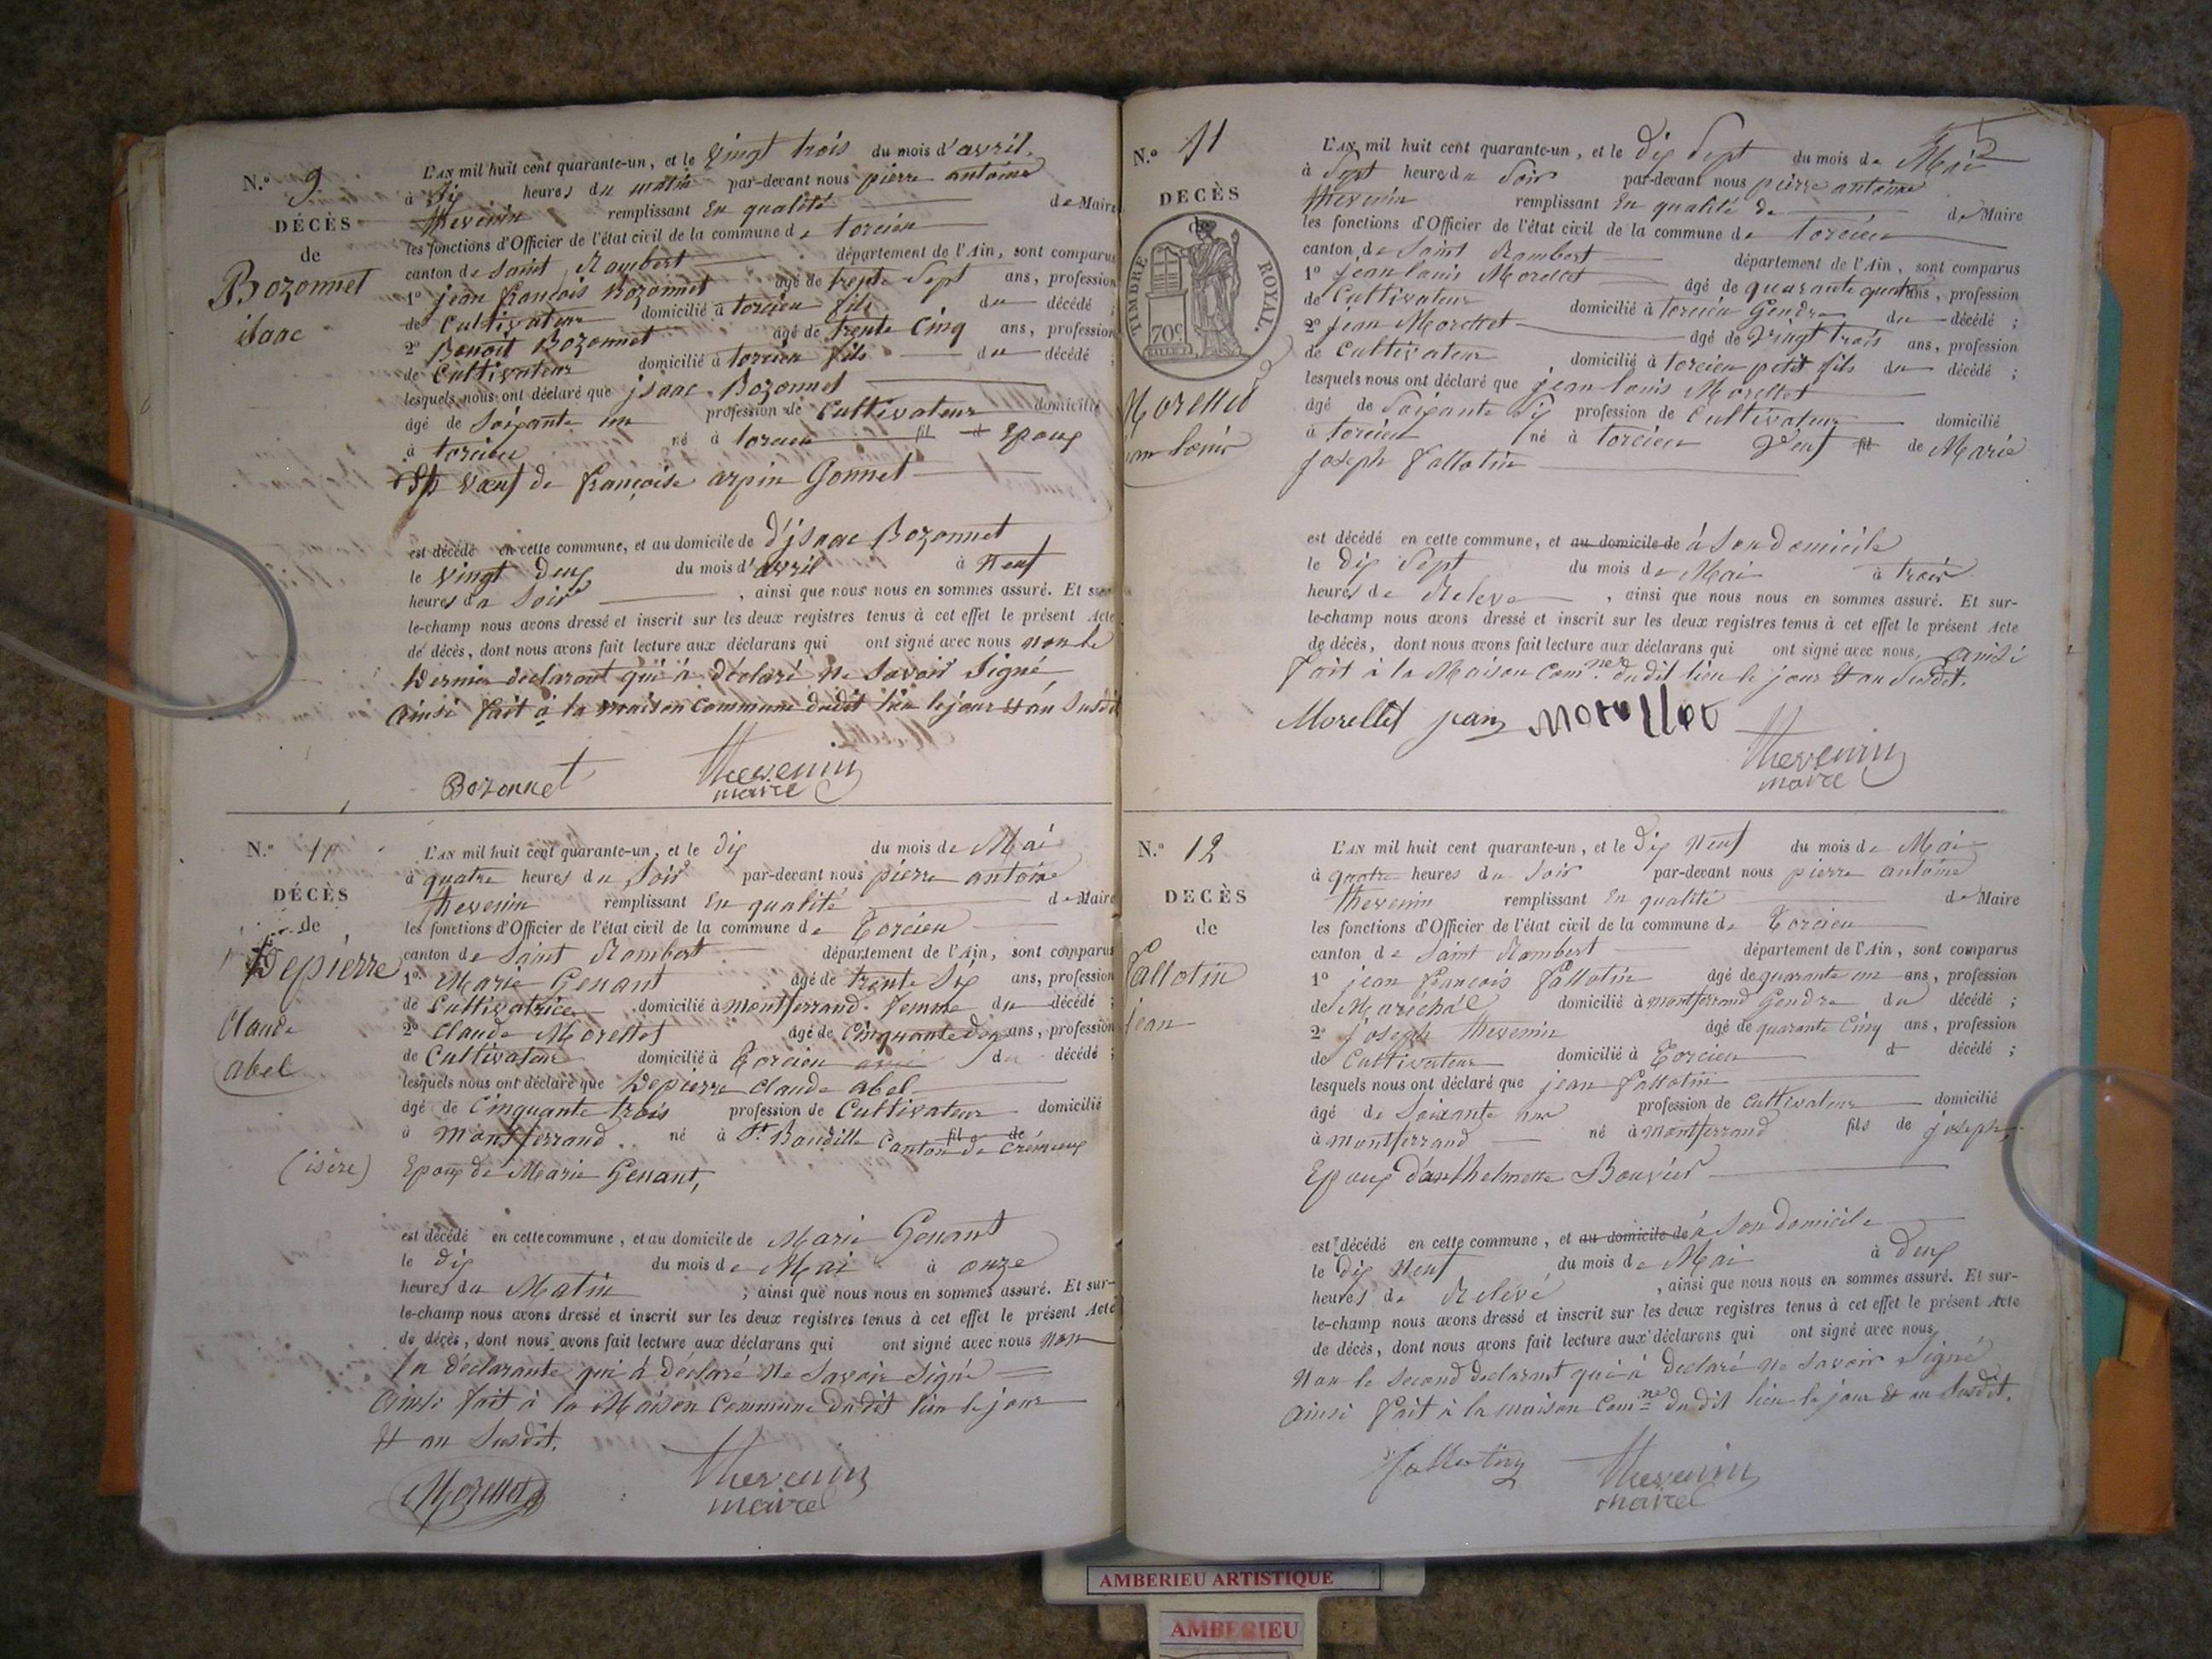 N.° 9
DÉCÈS
de
Bozonnet
isaac
L'AN mil huit cent quarante-un, et le Vingt trois du mois d'avril
à dix heures du matin par-devant nous pierre antoine
thevenin remplissant En qualité de Maire
les fonctions d'Officier de l'état civil de la commune de torcieu
canton de Saint Rambert département de l'Ain, sont comparus
1° jean françois Bozonnet âgé de trente Sept ans, profession
de Cultivateur domicilié à torcieu fils du décédé ;
2° Benoit Bozonnet âgé de trente Cinq ans, profession
de Cultivateur domicilié à torcieu fils du décédé ;
lesquels nous ont déclaré que isaac Bozonnet
âgé de Soixante un profession de Cultivateur domicilié
à torcieu né à torcieu fil d Epoux
Et veuf de françoise arpin Gonnet
est décédé en cette commune, et au domicile de d'isaac Bozonnet
le vingt deux du mois d'avril à neuf
heures du Soir, ainsi que nous nous en sommes assuré. Et sur-
le-champ nous avons dressé et inscrit sur les deux registres tenus à cet effet le présent Acte
de décès, dont nous avons fait lecture aux déclarans qui ont signé avec nous non le
dernier declarant qui à déclaré ne Savoir Signé
ainsi fait à la maison commune dudit lieu le jour et an Susdit
Bozonnet thevenin
maire
N.° 10
DÉCÈS
de
Depierre
Claude
abel
L'AN mil huit cent quarante-un, et le dix du mois de Mai
à quatre heures du Soir par-devant nous pierre antoine
thevenin remplissant En qualité de Maire
les fonctions d'Officier de l'état civil de la commune de Torcieu
canton de Saint Rambert département de l'Ain, sont comparus
1° Marie Genant âgé de trente Six ans, profession
de Cultivatrice domicilié à Montferrand femme du décédé ;
2° Claude Morellet âgé de Cinquante deux ans, profession
de Cultivateur domicilié à Torcieu ami du décédé ;
lesquels nous ont déclaré que Depierre Claude abel
âgé de Cinquante trois profession de Cultivateur domicilié
à Montferrand né à St Baudille fil de Canton de Crémieux
(isère) Epoux de Marie Genant,
est décédé en cette commune, et au domicile de Marie Genant
le dix du mois de Mai à onze
heures du Matin ; ainsi que nous nous en sommes assuré. Et sur-
le-champ nous avons dressé et inscrit sur les deux registres tenus à cet effet le présent Acte
de décès, dont nous avons fait lecture aux déclarans qui ont signé avec nous non
la déclarante qui à déclaré ne Savoir Signé
ainsi fait à la Maison Commune dudit lieu le jour
et an Susdit.
Morellet thevenin
maire
5
N.° 11
DECÈS
de
TIMBRE ROYAL.
70c
Morellet
jean louis
L'AN mil huit cent quarante-un, et le dix Sept du mois de Mai
à Sept heures du Soir par-devant nous pierre antoine
thevenin remplissant En qualité de de Maire
les fonctions d'Officier de l'état civil de la commune de torcieu
canton de Saint Rambert département de l'Ain, sont comparus
1° jean louis Morellet âgé de quarante quatre ans, profession
de Cultivateur domicilié à torcieu Gendre du décédé ;
2° jean Morellet âgé de Vingt trois ans, profession
de Cultivateur domicilié à torcieu petit fils du décédé ;
lesquels nous ont déclaré que jean louis Morellet
âgé de Soixante dix profession de Cultivateur domicilié
à torcieu né à torcieu Veuf fil de Marie
joseph fallatin
est décédé en cette commune, et au domicile de à Son domicile
le dix Sept du mois de Mai à trois
heures de Releve, ainsi que nous nous en sommes assuré. Et sur-
le-champ nous avons dressé et inscrit sur les deux registres tenus à cet effet le présent Acte
de décès, dont nous avons fait lecture aux déclarans qui ont signé avec nous, ainsi
fait à la Maison Com.ne du dit lieu le jour et an Susdit.
Morellet jean Morellet
thevenin
maire
N.° 12
DECÈS
de
fallatin
jean
L'AN mil huit cent quarante-un, et le dix Neuf du mois de Mai
à quatre heures du Soir par-devant nous pierre antoine
thevenin remplissant En qualité de Maire
les fonctions d'Officier de l'état civil de la commune de Torcieu
canton de Saint Rambert département de l'Ain, sont comparus
1° jean françois fallatin âgé de quarante un ans, profession
de Maréchal domicilié à montferrand Gendre du décédé ;
2° joseph thevenin âgé de quarante Cinq ans, profession
de Cultivateur domicilié à Torcieu d décédé ;
lesquels nous ont déclaré que jean fallatin
âgé de Soixante profession de Cultivateur domicilié
à montferrand né à montferrand fils de joseph,
Epoux d'anthelmette Bouvier
est décédé en cette commune, et au domicile de à Son domicile
le dix Neuf du mois de Mai à deux
heures de Relevé, ainsi que nous nous en sommes assuré. Et sur-
le-champ nous avons dressé et inscrit sur les deux registres tenus à cet effet le présent Acte
de décès, dont nous avons fait lecture aux déclarans qui ont signé avec nous,
non le second declarant qui à declaré ne savoir Signé
ainsi fait à la maison Com.ne du dit lieu le jour et an susdit.
fallatin thevenin
maire
AMBERIEU ARTISTIQUE
AMBERIEU